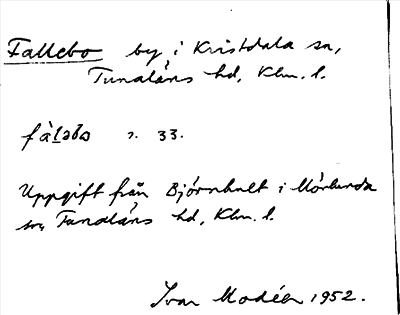 Fallebo by i Kristdala sn,
Tunaläns hd, Klm. l.
fàlǝbo s. 33.
Uppgift från Björnhult i Mörlunda
sn, Tunaläns hd, Klm. l.
Ivar Modéer 1952.